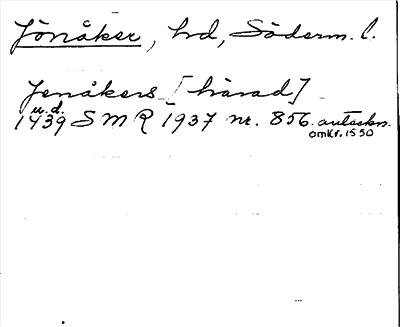 Jönåker, hd, Söderm. l.
Jenåkers [härad]
u.d.
1439 SMR 1937 nr. 856. anteckn.
omkr. 1550